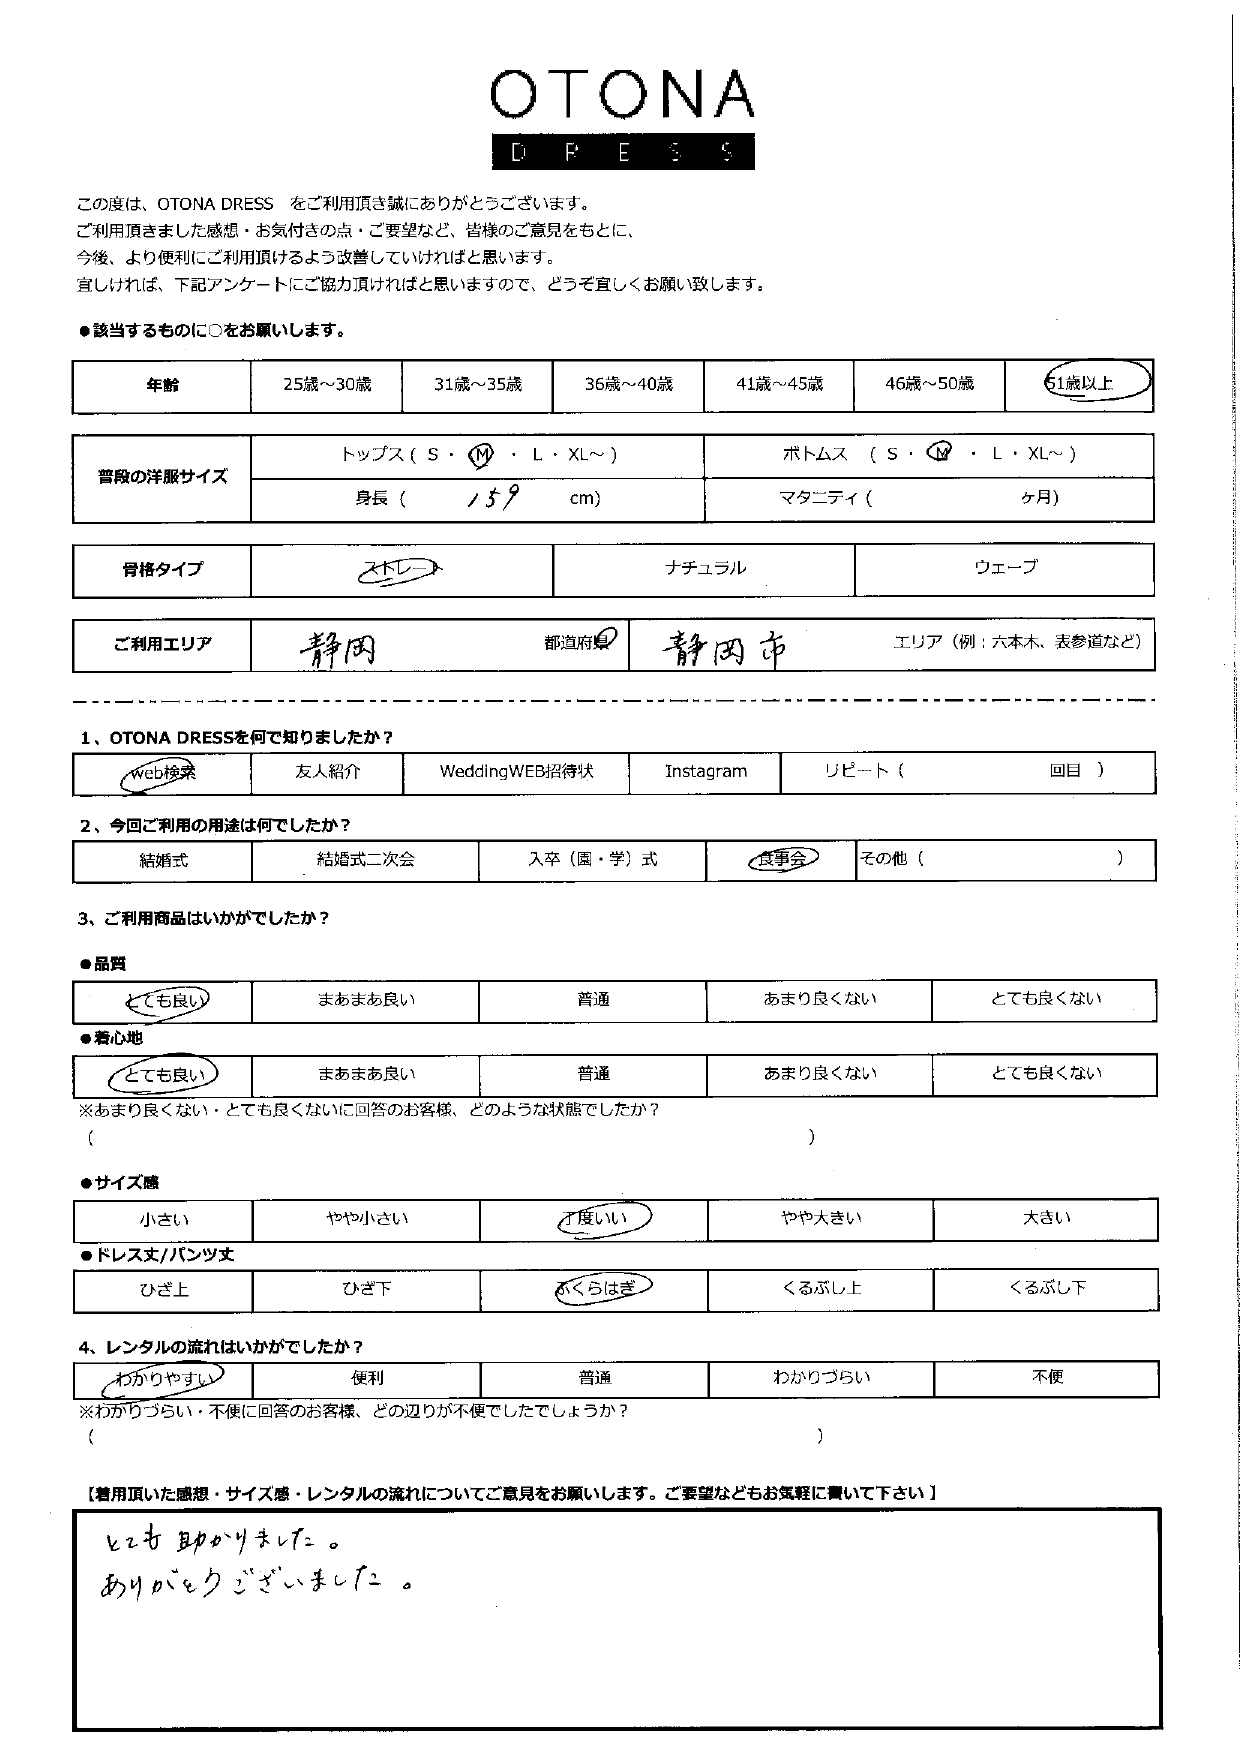 OTONA
DRESS
この度は、OTONA DRESS　をご利用頂き誠にありがとうございます。
ご利用頂きました感想・お気付きの点・ご要望など、皆様のご意見をもとに、
今後、より便利にご利用頂けるよう改善していければと思います。
宜しければ、下記アンケートにご協力頂ければと思いますので、どうぞ宜しくお願い致します。
●該当するものに○をお願いします。
年齢 25歳～30歳 31歳～35歳 36歳～40歳 41歳～45歳 46歳～50歳 51歳以上
普段の洋服サイズ トップス ( S ・ M ・ L ・ XL～ ) ボトムス ( S ・ M ・ L ・ XL～ )
身長 ( 159 cm) マタニティ ( ヶ月)
骨格タイプ ストレート ナチュラル ウェーブ
ご利用エリア 静岡 都道府県 静岡市 エリア（例：六本木、表参道など）
1、OTONA DRESSを何で知りましたか？
web検索 友人紹介 WeddingWEB招待状 Instagram リピート ( 回目 )
2、今回ご利用の用途は何でしたか？
結婚式 結婚式二次会 入卒（園・学）式 食事会 その他 ( )
3、ご利用商品はいかがでしたか？
●品質
とても良い まあまあ良い 普通 あまり良くない とても良くない
●着心地
とても良い まあまあ良い 普通 あまり良くない とても良くない
※あまり良くない・とても良くないに回答のお客様、どのような状態でしたか？
( )
●サイズ感
小さい やや小さい 丁度いい やや大きい 大きい
●ドレス丈/パンツ丈
ひざ上 ひざ下 ふくらはぎ くるぶし上 くるぶし下
4、レンタルの流れはいかがでしたか？
わかりやすい 便利 普通 わかりづらい 不便
※わかりづらい・不便に回答のお客様、どの辺りが不便でしたでしょうか？
( )
【着用頂いた感想・サイズ感・レンタルの流れについてご意見をお願いします。ご要望などもお気軽に書いて下さい】
とても助かりました。
ありがとうございました。